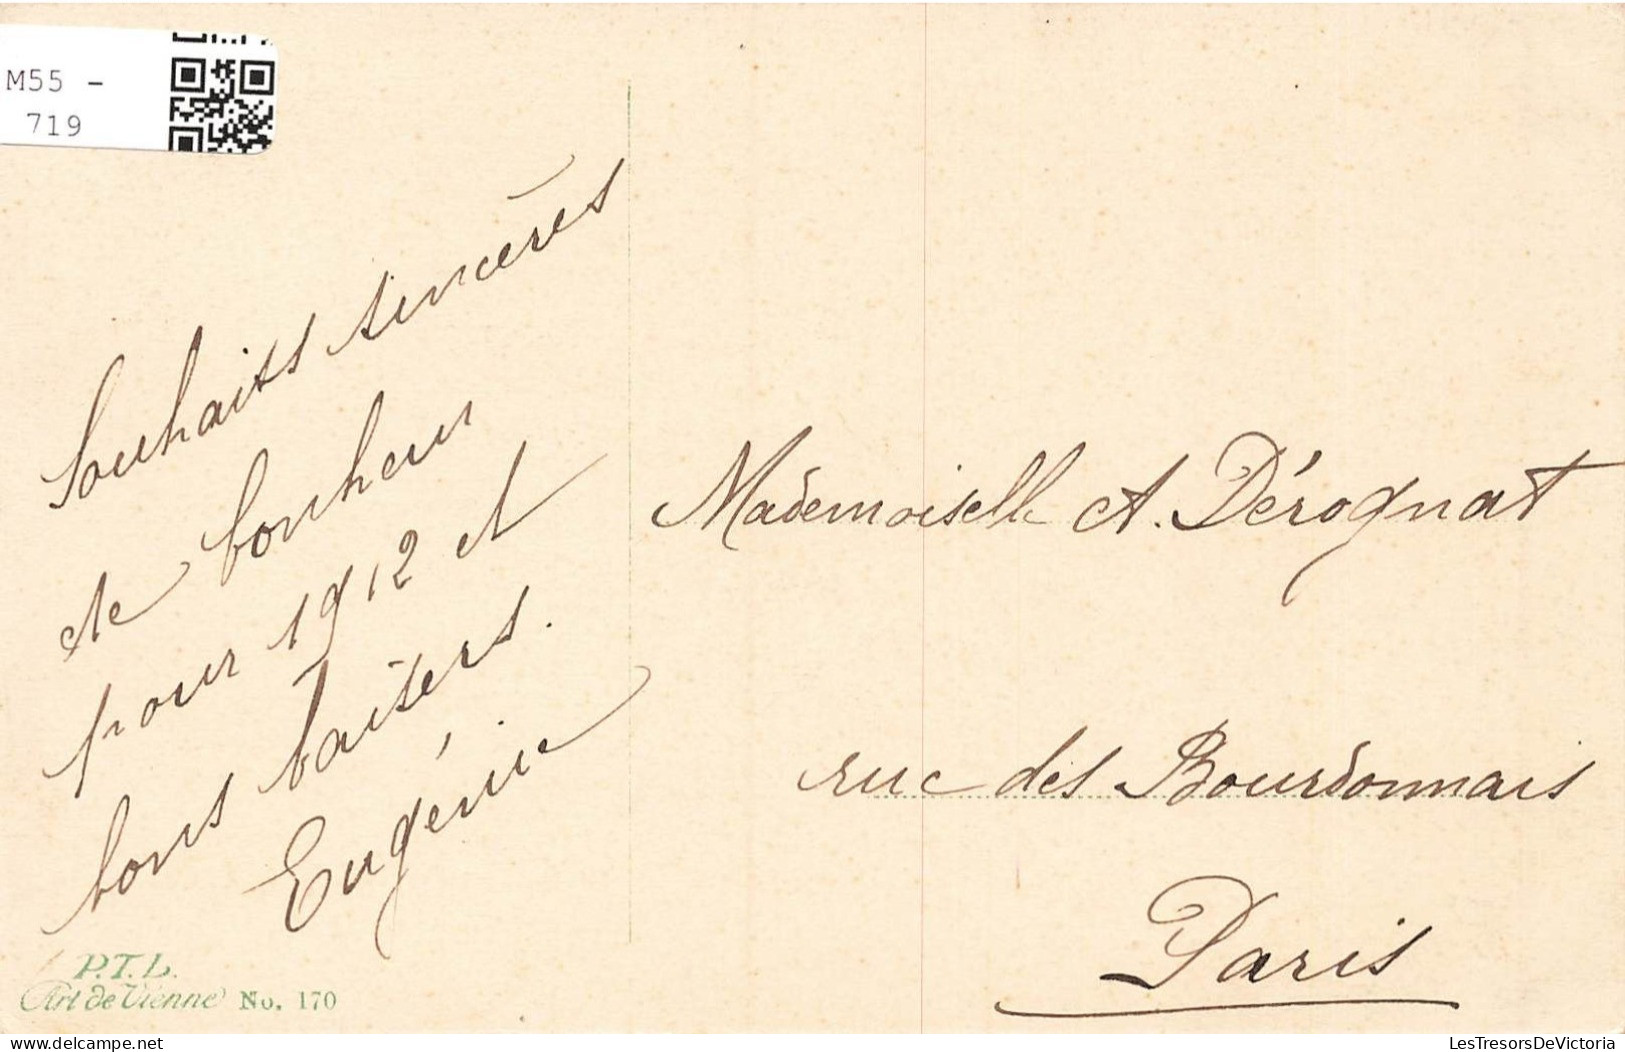 M55 -
719
Souhaits sincères
de bonheur
pour 1912 et
bons baisers.
Eugénie
Mademoiselle A. Dérognat
rue des Bourdonnais
Paris
P.T.L.
Art de Vienne No. 170
delcampe.net
LesTresorsDeVictoria